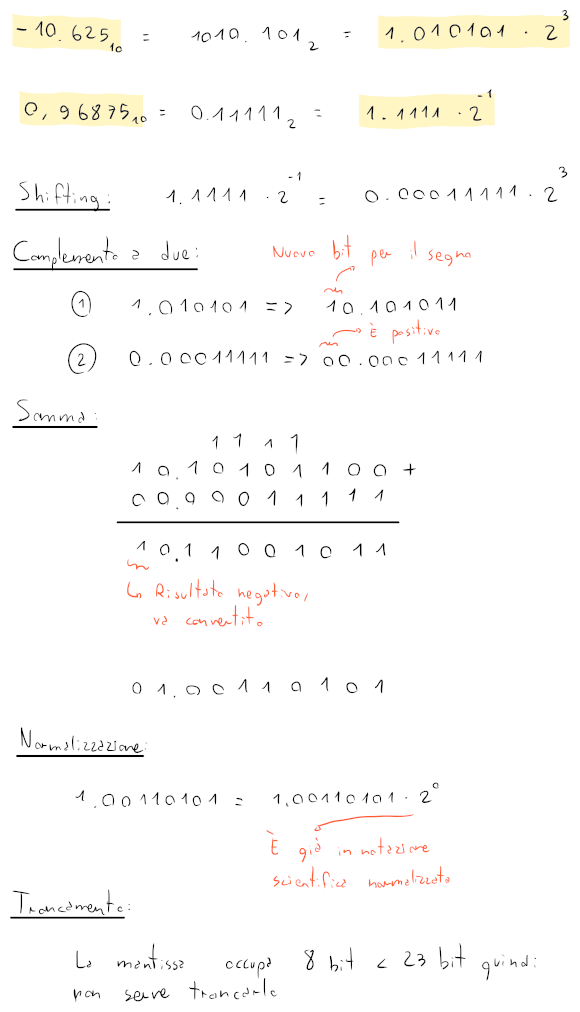 -10.625₁₀ = 1010.101₂ = 1.010101 · 2³
0,96875₁₀ = 0.11111₂ = 1.1111 · 2⁻¹
Shifting: 1.1111 · 2⁻¹ = 0.00011111 · 2³
Complemento a due: Nuovo bit per il segno
① 1.010101 => 10.101011
È positivo
② 0.00011111 => 00.00011111
Somma:
1 1 1 1
1 0.1 0 1 0 1 1 0 0 +
0 0.0 0 0 1 1 1 1 1
1 0.1 1 0 0 1 0 1 1
↳ Risultato negativo,
va convertito
0 1.0 0 1 1 0 1 0 1
Normalizzazione:
1.00110101 = 1.00110101 · 2⁰
È già in notazione
scientifica normalizzata
Troncamento:
La mantissa occupa 8 bit < 23 bit quindi
non serve troncarla